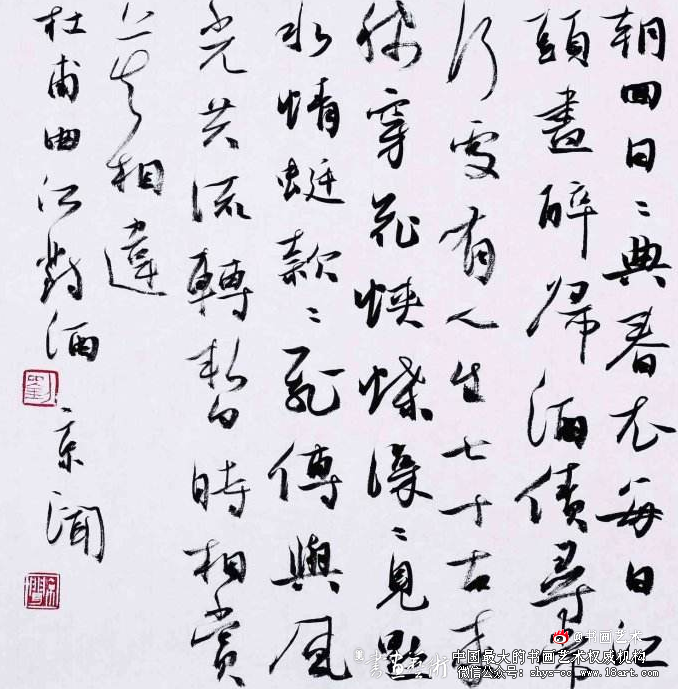 朝回日〻典春衣每日江
頭盡醉歸酒債尋常
行處有人生七十古来
稀穿花蛺蝶深〻見點
水蜻蜓款〻飛傳與風
光共流轉暫時相賞
莫相違
杜甫曲江對酒
京聞
@书画艺术
書画藝術
中国最大的书画艺术权威机构
微信公众号：shys-cc www.18art.com